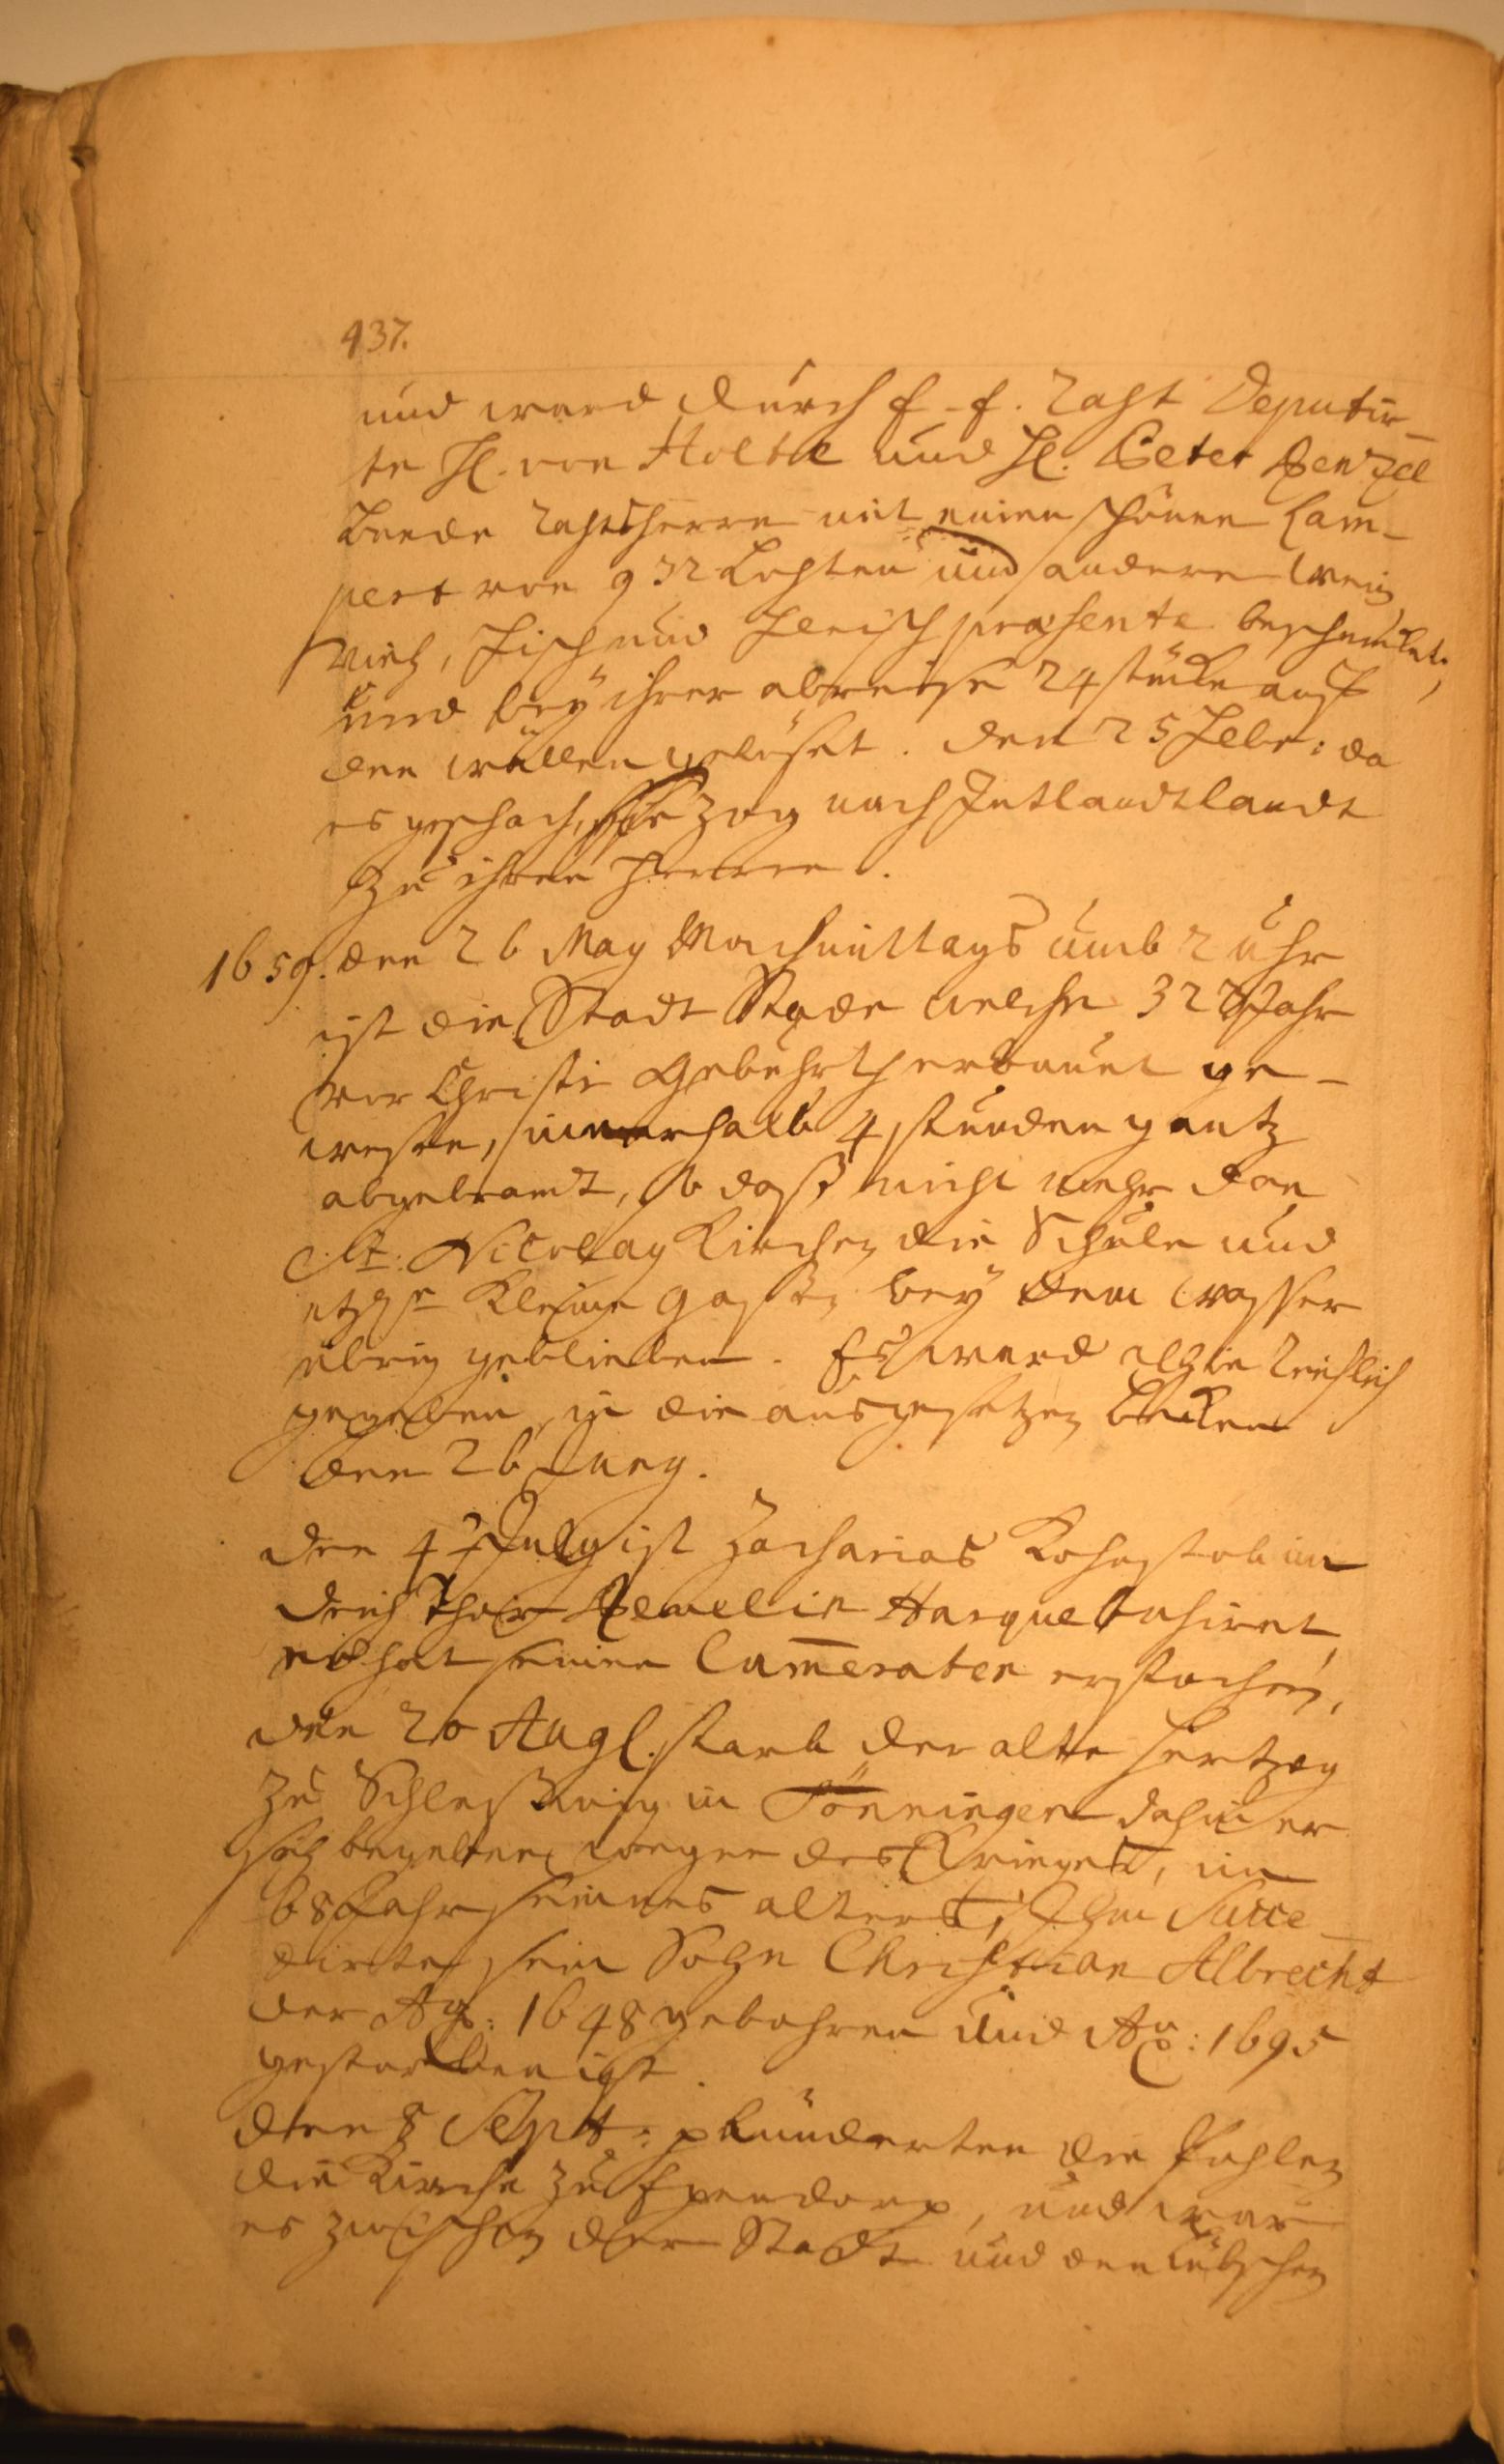 437.
und ward durch E. E. Raht Deputir_
te H. von Holte und H. Peter
beede Rahtsherrn mit einen schönen Lam_
pert von 9 32 Lichten und andern Wein
Vieh, Fisch und Fleisch præsente beschencket,
und bey ihrer abreise 24 stücke auf
den wällen gelöset. den 25 Febr: da
es geschach, sie zog nach Jutlandtlandt
zu ihren Herren.
1659. den 26 May Nachmittags umb 2 Uhr
ist die Stadt Stade welche 322 Jahr
vor Christi Gebuhrt erbauet ge_
wesen, innerhalb 4 stunden gantz
abgebrandt, so daß nicht mehr dan
St. Nicolay Kirchen die Schule und
etzl. kleine Gassen bey dem Wasser
übrig geblieben. Es ward alhie Reichlich
gegeben in die ausgesetzen Becken
den 26 Juny.
den 4 July ist Zacharias im
deich Thor Harquebusiret
er hat seinen Cameraten erstochen,
den 20 Aug. starb der alte Hertzog
zu Schleßwig in Tönningen dahin er
sich begeben wegen des Krieges, im
68 Jahr seines alters, Ihm Succe_
dirte sein Sohn Christian Albrecht
der Ao: 1648 gebohren und Ao: 1695
gestorben ist.
den 8 Sept: plünderten die Pohlen
die Kirche zu Ependorp, und war
es zwischen der Stadt und den Lübschen